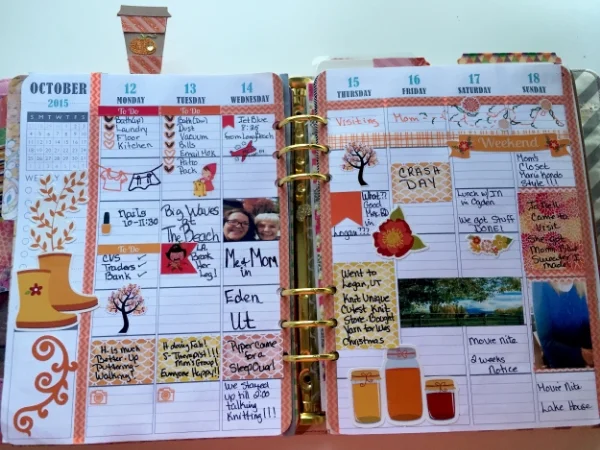 OCTOBER
2015
S M T W T F S
12
MONDAY
To Do
Laundry
Floor
Kitchen
Nails
10-11:30
To Do
CVS
Traders
Bank
H is much
Better-Up
Puttering-
Walking!
13
TUESDAY
To Do
Dust
Vacuum
Bills
Pack
Big Waves
at
The Beach
LA
Book
H doing Fab!
5-Therapist!!!
Mm's Group!
Everyone Happy!!
14
WEDNESDAY
To Do
Jet Blue
From Long Beach
Me & Mom
in
Eden
Ut
Piper came
for a
SleepOver!
We Stayed
up till 2:00
talking
Knitting!!!
15
THURSDAY
Visiting
What??
Good
in
Logan???
Went to
Logan, UT
Knit Unique
Cutest Knit
Store-Bought
Yarn for Wes
Christmas
16
FRIDAY
Mom
CRASH
DAY
17
SATURDAY
Weekend
Lunch w/
in Ogden
We got Stuff
DONE!
Movie Nite
2 weeks
Notice
18
SUNDAY
Mom's
Closet
Style!!!
Came to
Visit
She Got
Sweater I
made!
Movie Nite
Lake House